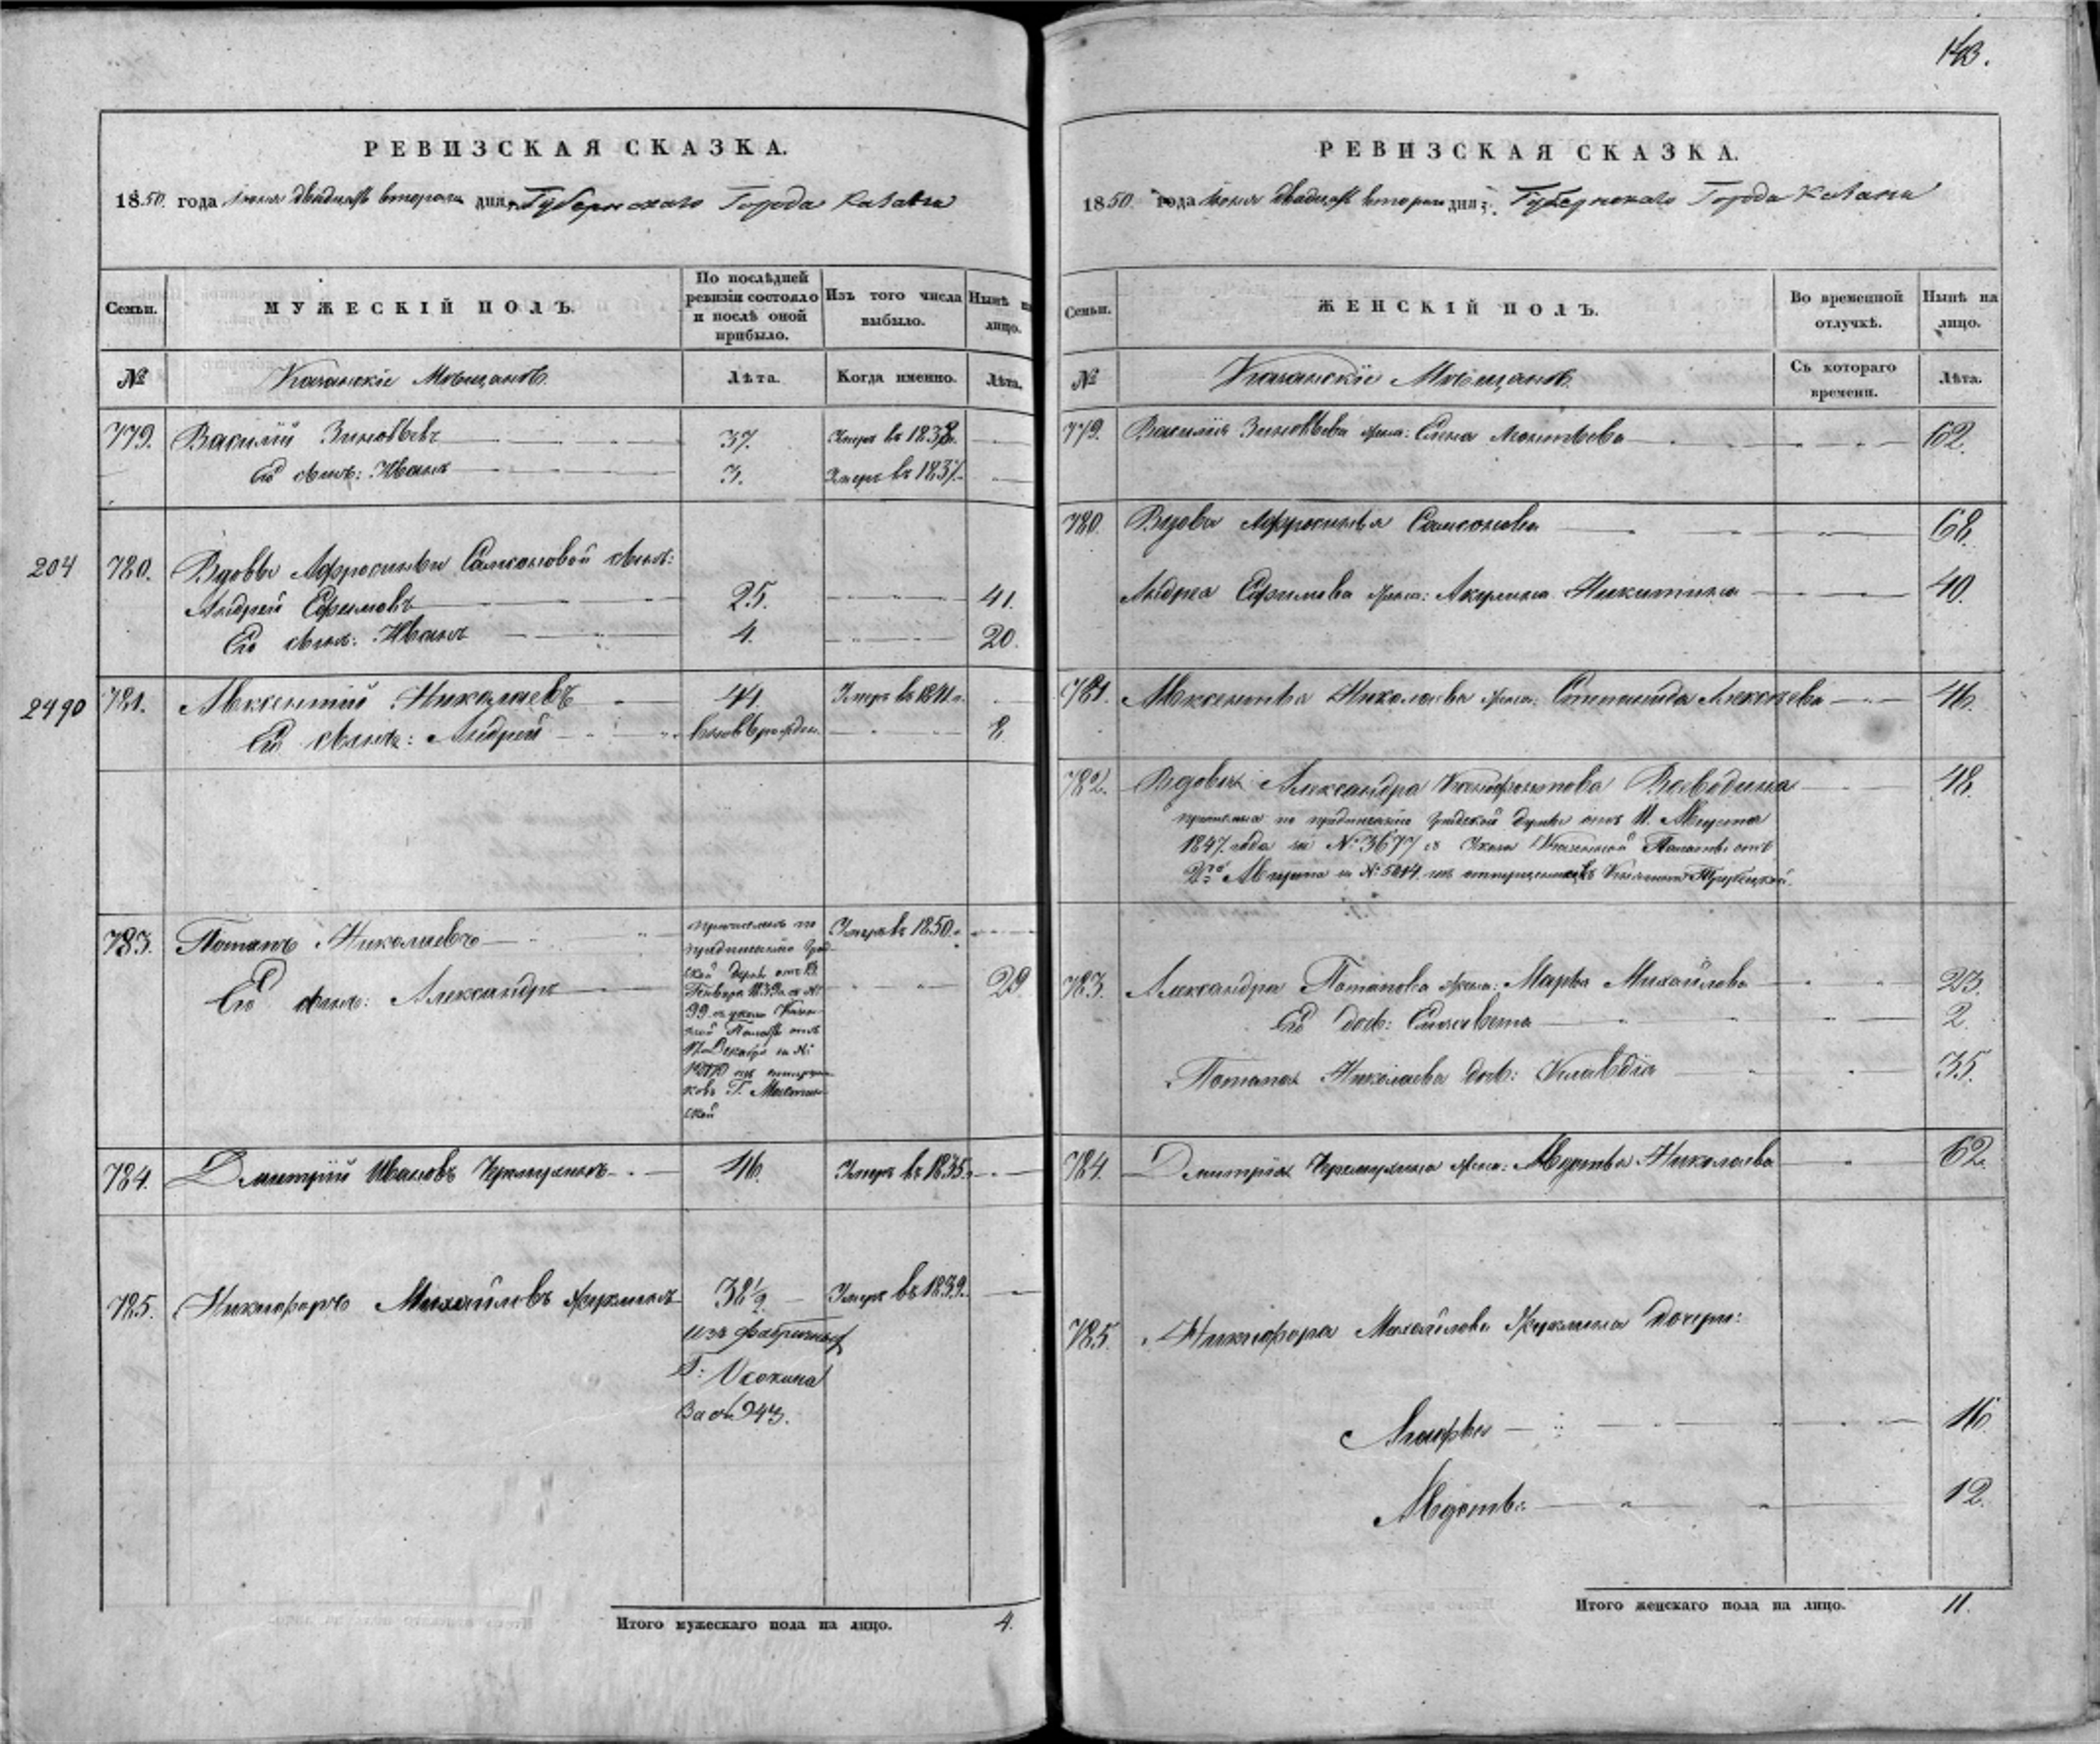 143.
РЕВИЗСКАЯ СКАЗКА.
1850 года Июня двадцать втораго дня, Губернскаго Города Казани
Семьи.
МУЖЕСКІЙ ПОЛЪ.
По послѣдней ревизіи состояло и послѣ оной прибыло.
Изъ того числа выбыло.
Нынѣ на лицо.
№
Казанскіе Мѣщане
Лѣта.
Когда именно.
Лѣта.
779. Василій Зиновьевъ 37. Умеръ въ 1838.
Его сынъ: Иванъ 3. Умеръ въ 1837.
204 780. Вдовы Афросиньи Самсоновой сынъ:
Андрей Ефимовъ 25. 41.
Его сынъ: Иванъ 4. 20.
2490 781. Авксентій Николаевъ 44. Умеръ въ 1841.
Его сынъ: Андрей вновь рожден. 8.
783. Потапъ Николаевъ Умеръ въ 1850.
Его сынъ: Александръ 29
причисленъ по
предписанію Град-
ской Думы отъ
Генваря 1839 за №
99. съ указа Казен-
ной Палаты отъ
Декабря за №
изъ отпущен-
ковъ Г.
ской
784. Дмитрій Ивановъ 46. Умеръ въ 1835.
785. Никифоръ Михайловъ 38 1/2 Умеръ въ 1839.
изъ фабричныхъ
Г: Осокина
943.
Итого мужескаго пола на лицо. 4.
РЕВИЗСКАЯ СКАЗКА.
1850 года Июня двадцать втораго дня, Губернскаго Города Казани
Семьи.
ЖЕНСКІЙ ПОЛЪ.
Во временной отлучкѣ.
Нынѣ на лицо.
№
Казанскіе Мѣщане
Съ котораго времени.
Лѣта.
779. Василія Зиновьева жена: Елена Леонтьева 62.
780. Вдова Афросинья Самсонова 68.
Андрея Ефимова жена: Акулина Никитина 40.
781. Авксентья Николаева жена: Степанида Алексѣева 46.
782. Вдова Александра Ксенофонтова Воеводина 48.
причислена по предписанію Градской Думы отъ 11. Августа
1847. года за № 3677 съ Указа Казенной Палаты отъ
2го Августа за № 5014. изъ
783. Александра Потапова жена: Марья Михайлова 23.
Его дочь: Елизавета 2.
Потапа Николаева дочь: Клавдія 35.
784. Дмитрія жена: Авдотья Николаева 62.
785. Никифора Михайлова дочери:
Агафья 16.
Авдотья 12.
Итого женскаго пола на лицо. 11.